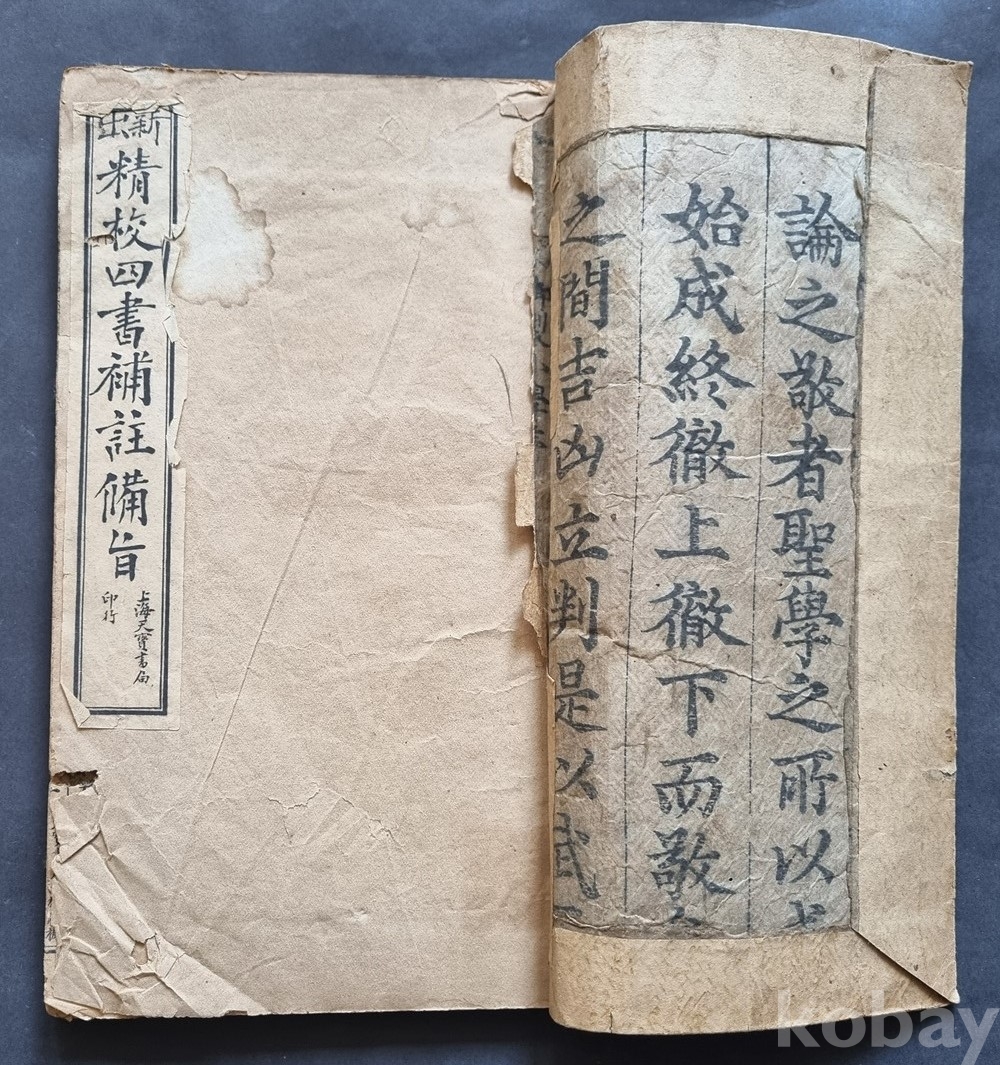 論之敬者聖學之所以
始成終徹上徹下而敬
之間吉凶立判是以武
新出
精校四書補註備旨
上海天寶書局
印行
kobay